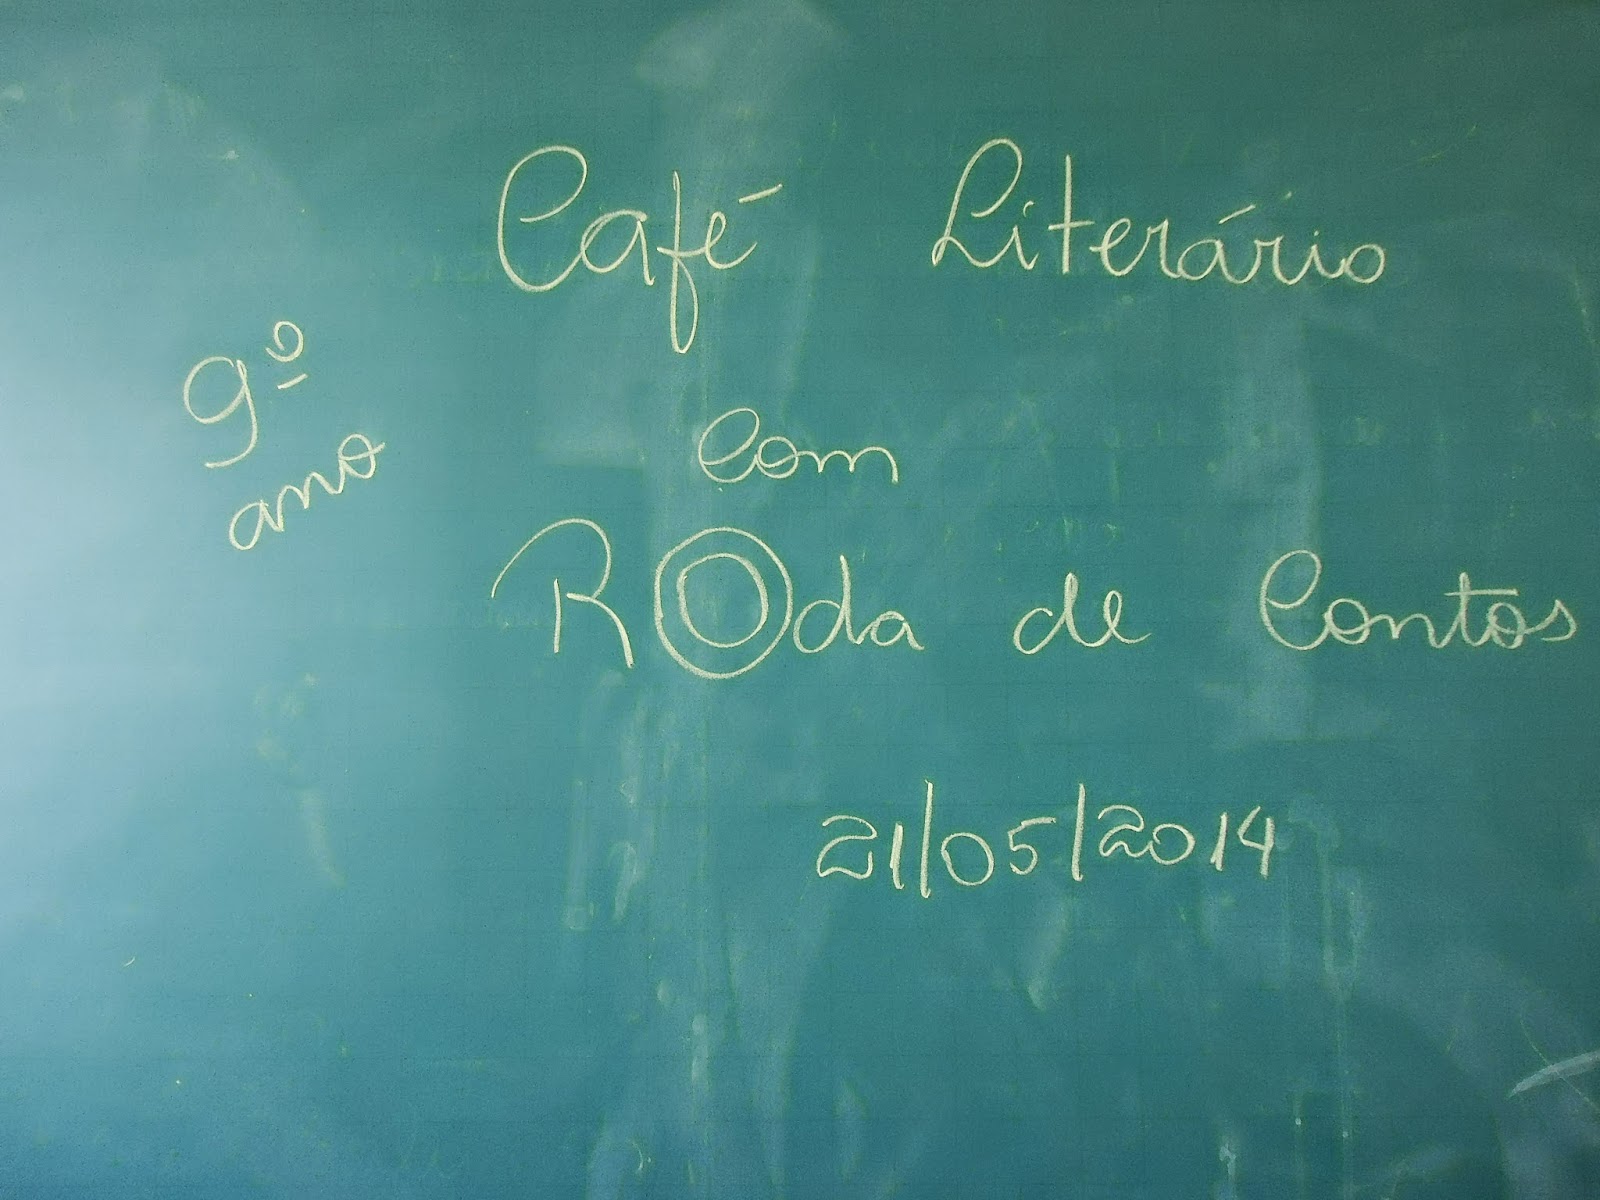 Café Literário
9º
ano
com
Roda de Contos
21/05/2014